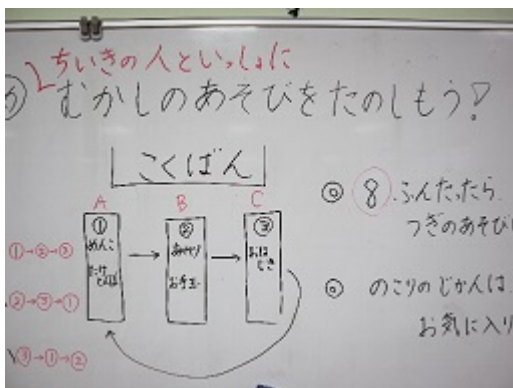 ちいきの人といっしょに
むかしのあそびをたのしもう!
こくばん
A B C
① ② ③
めんこ
お手玉
おはじき
①→②→③
②→③→①
③→①→②
◎ 8ふんたったら
つぎのあそび
◎ のこりのじかんは
お気に入り